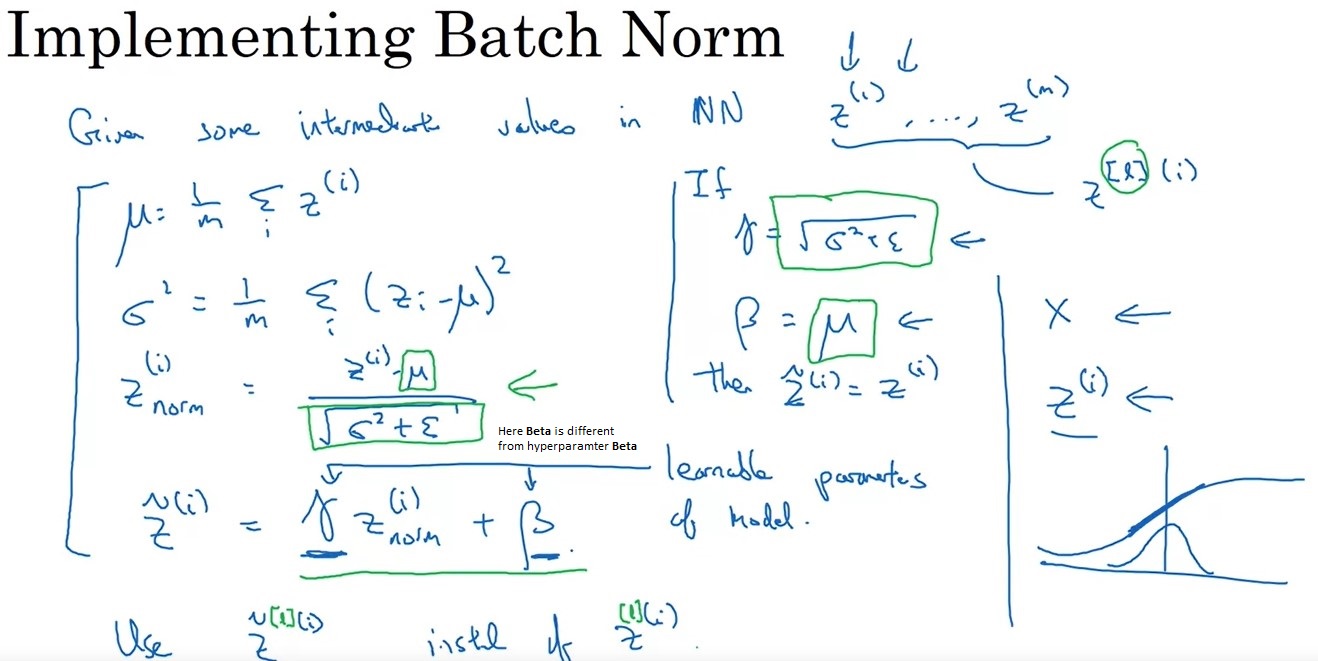 Implementing Batch Norm
Given some intermediate values in NN z^(i), ...., z^(m)
z^[l](i)
μ = 1/m Σ_i z^(i)
σ² = 1/m Σ_i (z_i - μ)²
z^(i)_norm = (z^(i) - μ) / √(σ² + ε)
Here Beta is different
from hyperparamter Beta
z̃^(i) = γ z^(i)_norm + β.
learnable parameters
of model.
If
γ = √(σ² + ε) ←
β = μ ←
then z̃^(i) = z^(i)
X ←
z^(i) ←
Use z̃^[l](i) instead of z^[l](i).